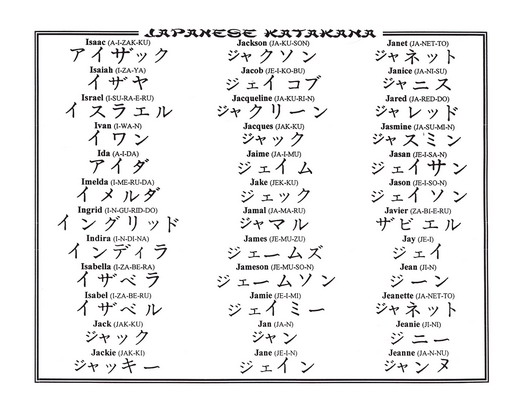 JAPANESE KATAKANA
Isaac (A-I-ZAK-KU)
アイザック
Isaiah (I-ZA-YA)
イザヤ
Israel (I-SU-RA-E-RU)
イスラエル
Ivan (I-WA-N)
イワン
Ida (A-I-DA)
アイダ
Imelda (I-ME-RU-DA)
イメルダ
Ingrid (I-N-GU-RID-DO)
イングリッド
Indira (I-N-DI-NA)
インディラ
Isabella (I-ZA-BE-RA)
イザベラ
Isabel (I-ZA-BE-RU)
イザベル
Jack (JAK-KU)
ジャック
Jackie (JAK-KI)
ジャッキー
Jackson (JA-KU-SON)
ジャクソン
Jacob (JE-I-KO-BU)
ジェイコブ
Jacqueline (JA-KU-RI-N)
ジャクリーン
Jacques (JAK-KU)
ジャック
Jaime (JA-I-MU)
ジェイム
Jake (JEK-KU)
ジェック
Jamal (JA-MA-RU)
ジャマル
James (JE-MU-ZU)
ジェームズ
Jameson (JE-MU-SO-N)
ジェームソン
Jamie (JE-I-MI)
ジェイミー
Jan (JA-N)
ジャン
Jane (JE-I-N)
ジェイン
Janet (JA-NET-TO)
ジャネット
Janice (JA-NI-SU)
ジャニス
Jared (JA-RED-DO)
ジャレッド
Jasmine (JA-SU-MI-N)
ジャスミン
Jasan (JE-I-SA-N)
ジェイサン
Jason (JE-I-SO-N)
ジェイソン
Javier (ZA-BI-E-RU)
ザビエル
Jay (JE-I)
ジェイ
Jean (JI-N)
ジーン
Jeanette (JA-NET-TO)
ジャネット
Jeanie (JI-NI)
ジニー
Jeanne (JA-N-NU)
ジャンヌ